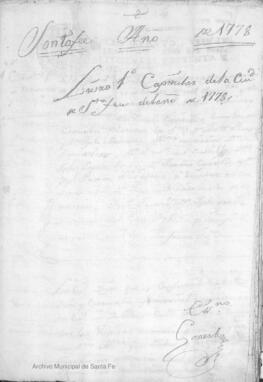 Santafee Año de 1778
Livro 1º Capitular de la Ciud
de Sta fee del año de 1778,
Essno
Archivo Municipal de Santa Fe